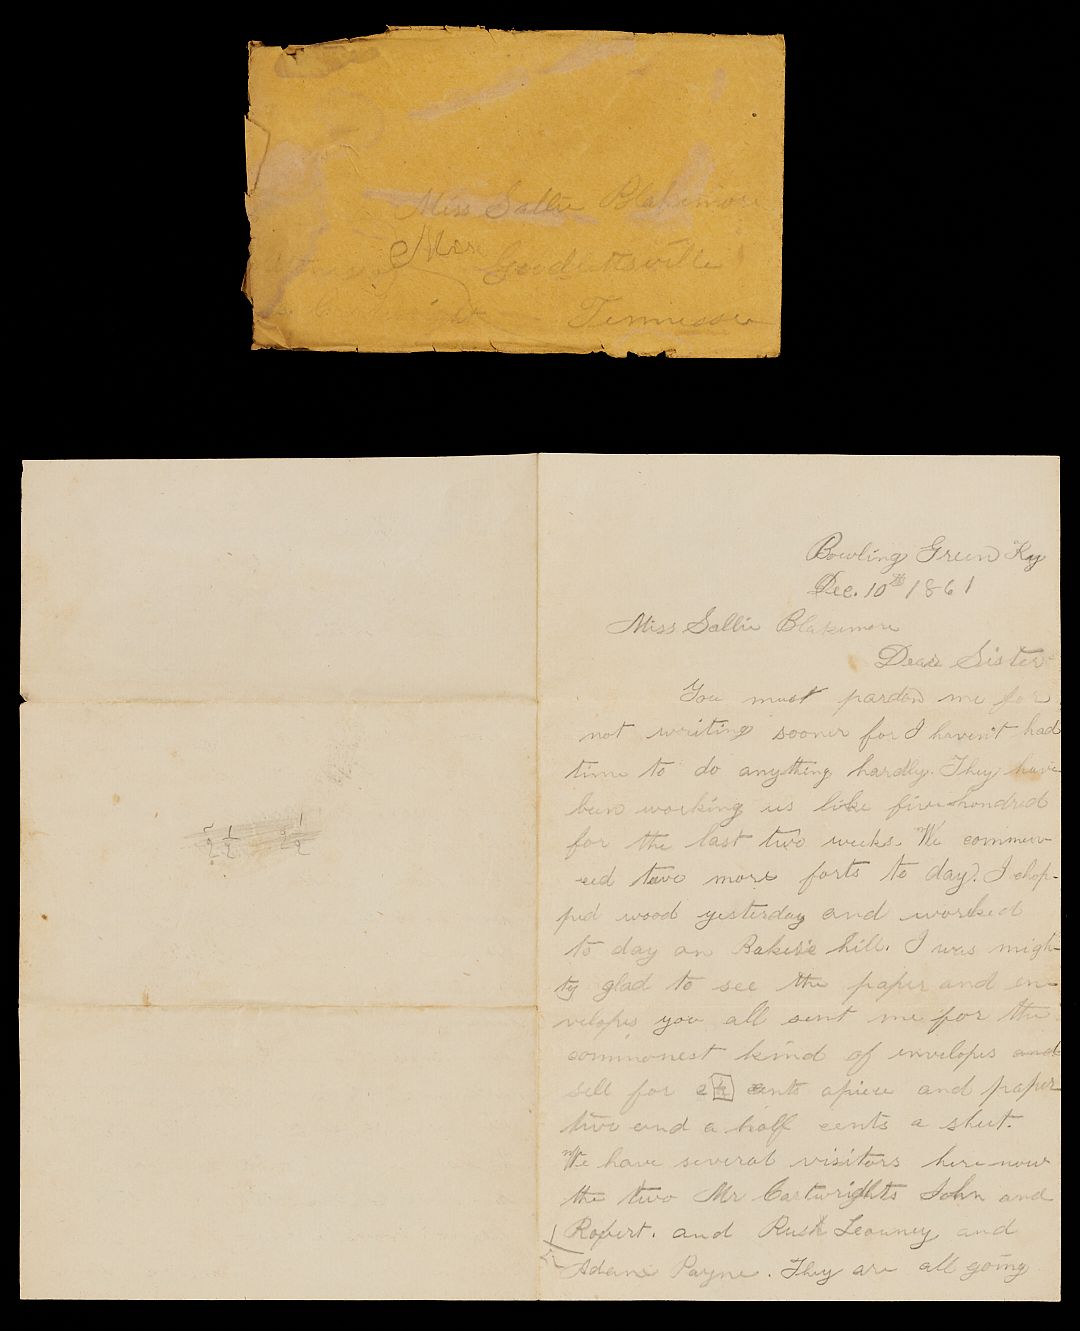 Miss Sallie Blakemore
Goodlettsville
Tennessee
Bowling Green Ky
Dec. 10th 1861
Miss Sallie Blakemore
Dear Sister
You must pardon me for
not writing sooner for I haven't had
time to do anything hardly. They have
been working us like five hundred
for the last two weeks. We commen-
ced two more forts to day. I chop-
ped wood yesterday and worked
to day on Baker's hill. I was migh-
ty glad to see the paper and en-
velopes you all sent me for the
commonest kind of envelopes and
sell for cents apiece and paper
two and a half cents a sheet.
We have several visitors here now
the two Mr Cartwrights John and
Robert. and Rush and
Adam Payne. They are all going